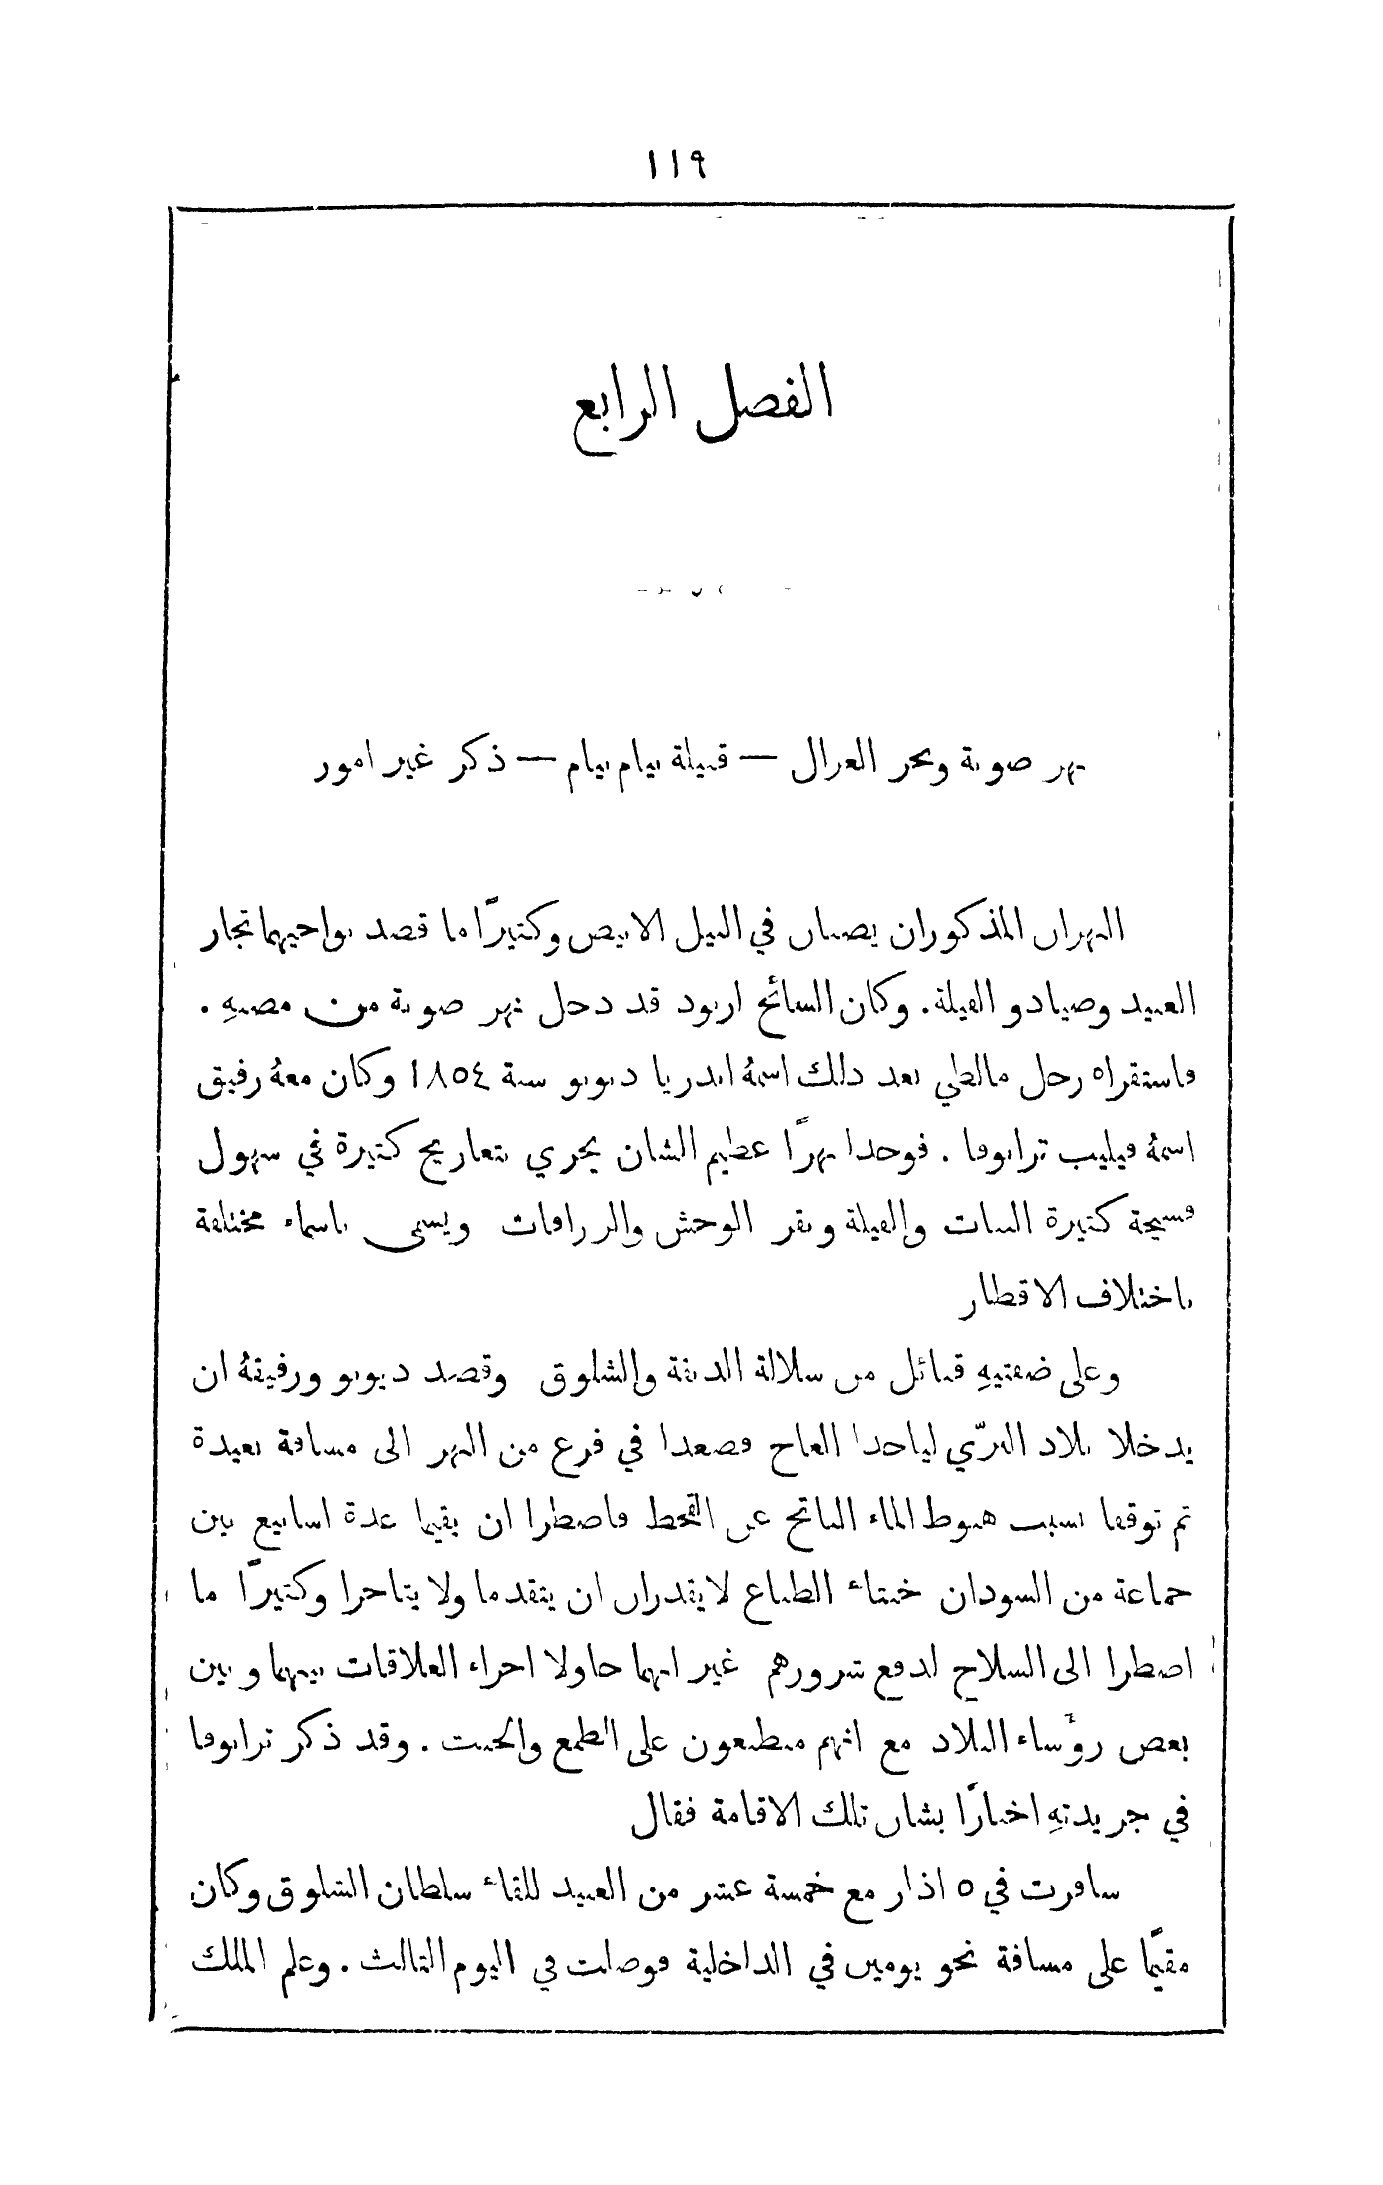 ١١٩
الفصل الرابع
نهر صوبة وبحر الغزال — قبيلة نيام نيام — ذكر غير امور
النهران المذكوران يصبان في النيل الابيض وكثيرًا ما قصد نواحيهما تجار
العبيد وصيادو الفيلة. وكان السائح ارنود قد دخل نهر صوبة من مصبهِ.
فاستقراه رجل مالطي بعد ذلك اسمهُ اندريا ديبونو سنة ١٨٥٤ وكان معهُ رفيق
اسمهُ فيليب ترانوفا. فوجدا نهرًا عظيم الشان يجري بتعاريج كثيرة في سهول
فسيحة كثيرة النبات والفيلة وبقر الوحش والزرافات ويسمى باسماء مختلفة
باختلاف الاقطار
وعلى ضفتيهِ قبائل من سلالة الدنقة والشلوق وقصد ديبونو ورفيقهُ ان
يدخلا بلاد البرّي لياخذا العاج فصعدا في فرع من النهر الى مسافة بعيدة
ثم توقفا بسبب هبوط الماء الناتج عن القحط فاضطرا ان يقيما عدة اسابيع بين
جماعة من السودان خبثاء الطباع لا يقدران ان يتقدما ولا يتاخرا وكثيرًا ما
اضطرا الى السلاح لدفع شرورهم غير انهما حاولا اجراء العلاقات بينهما وبين
بعض رؤساء البلاد مع انهم منطبعون على الطمع والخبث. وقد ذكر ترانوفا
في جريدتهِ اخبارًا بشان تلك الاقامة فقال
سافرت في ٥ اذار مع خمسة عشر من العبيد للقاء سلطان الشلوق وكان
مقيمًا على مسافة نحو يومين في الداخلية فوصلت في اليوم الثالث. وعلم الملك